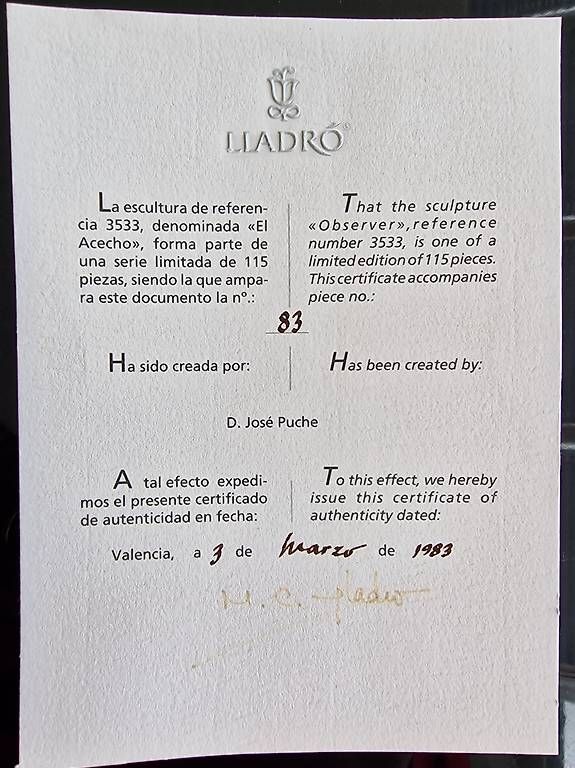 LLADRÓ
La escultura de referen-
cia 3533, denominada «El
Acecho», forma parte de
una serie limitada de 115
piezas, siendo la que ampa-
ra este documento la nº.:
That the sculpture
«Observer», reference
number 3533, is one of a
limited edition of 115 pieces.
This certificate accompanies
piece no.:
83
Ha sido creada por:
Has been created by:
D. José Puche
A tal efecto expedi-
mos el presente certificado
de autenticidad en fecha:
To this effect, we hereby
issue this certificate of
authenticity dated:
Valencia, a 3 de Marzo de 1983
M. C. Lladro